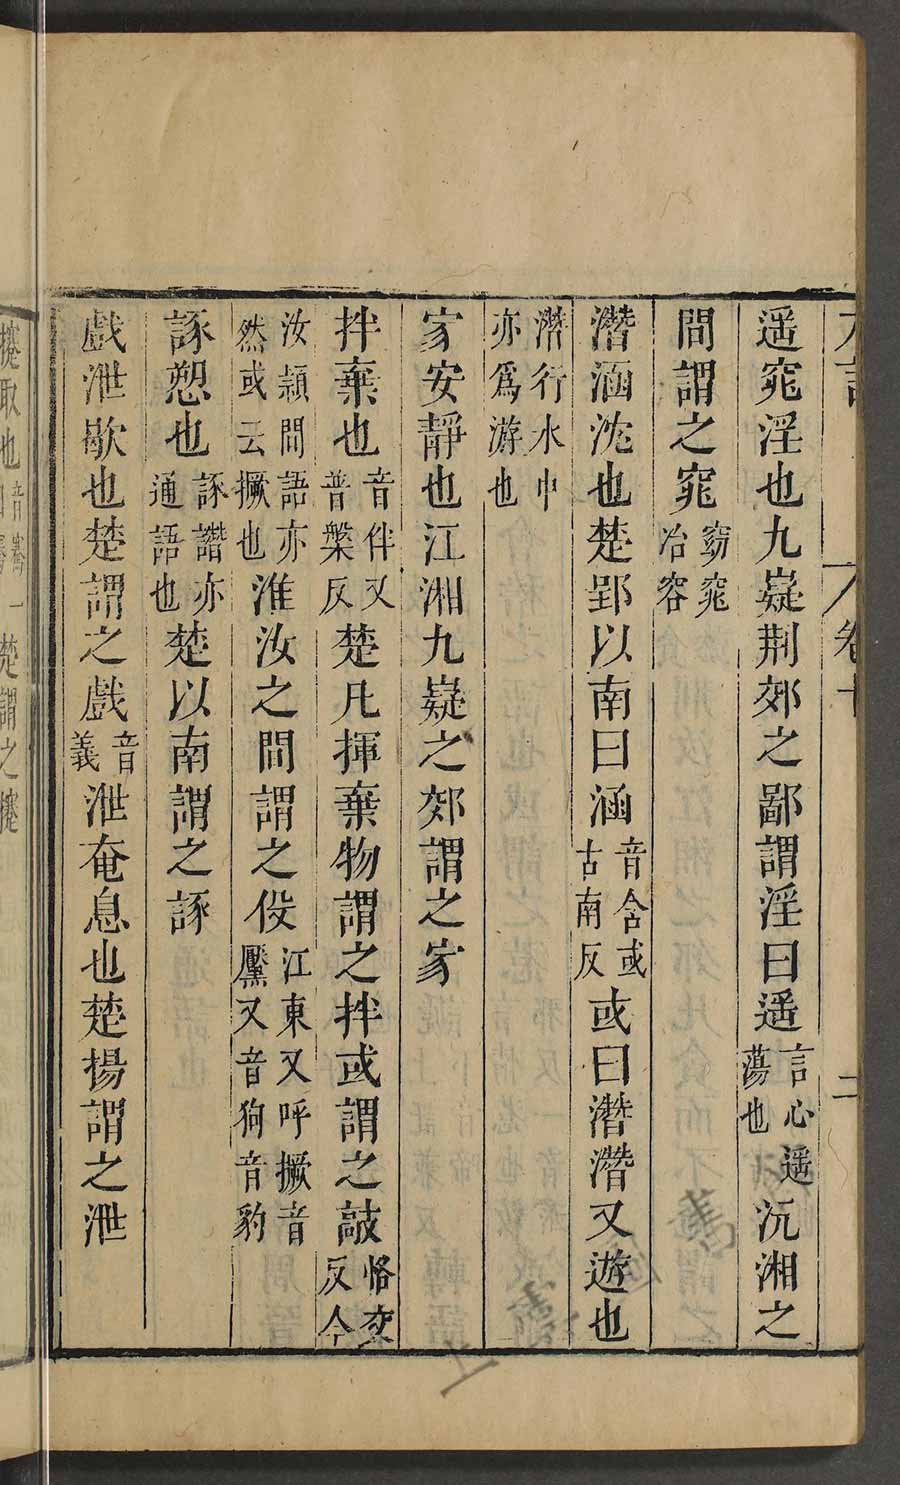 卷十 二
遥窕淫也九嶷荆郊之鄙謂淫曰遥言心遥蕩也沅湘之
間謂之窕窈窕冶容
潛涵沈也楚郢以南曰涵音含或古南反或曰潛潛又遊也
潛行水中亦爲游也
家安靜也江湘九嶷之郊謂之家
拌棄也音伴又普槃反楚凡揮棄物謂之拌或謂之敲恪交反今
汝潁間語亦然或云撅也淮汝之間謂之役江東又呼撅音黶又音狗音豹
諑愬也諑譖亦通語也楚以南謂之諑
戲泄歇也楚謂之戲音義泄奄息也楚揚謂之泄